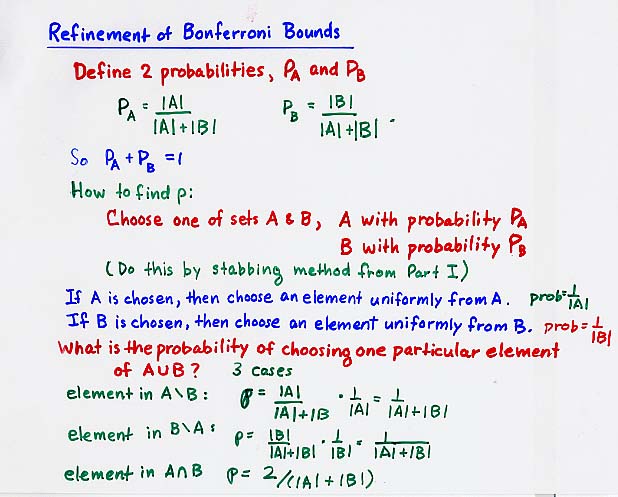 Refinement of Bonferroni Bounds
Define 2 probabilities, P_A and P_B
P_A = |A| / |A|+|B|    P_B = |B| / |A|+|B| .
So P_A + P_B = 1
How to find p:
Choose one of sets A & B, A with probability P_A
B with probability P_B
(Do this by stabbing method from Part I)
If A is chosen, then choose an element uniformly from A. prob = 1/|A|
If B is chosen, then choose an element uniformly from B. prob = 1/|B|
What is the probability of choosing one particular element
of A∪B? 3 cases
element in A\B: p = |A| / |A|+|B · 1/|A| = 1 / |A|+|B|
element in B\A: p = |B| / |A|+|B| · 1/|B| = 1 / |A|+|B|
element in A∩B p = 2/(|A|+|B|)